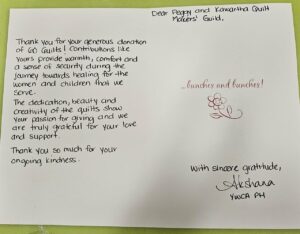 Thank you for your generous donation
of 60 Quilts! Contributions like
yours provide warmth, comfort and
a sense of security during the
journey towards healing for the
women and children that we
serve.
The dedication, beauty and
creativity of the quilts show
your passion for giving and we
are truly grateful for your love
and support.
Thank you so much for your
ongoing kindness.
Dear Peggy and Kawartha Quilt
Makers' Guild,
...bunches and bunches!
With sincere gratitude,
Akshana
YWCA PH